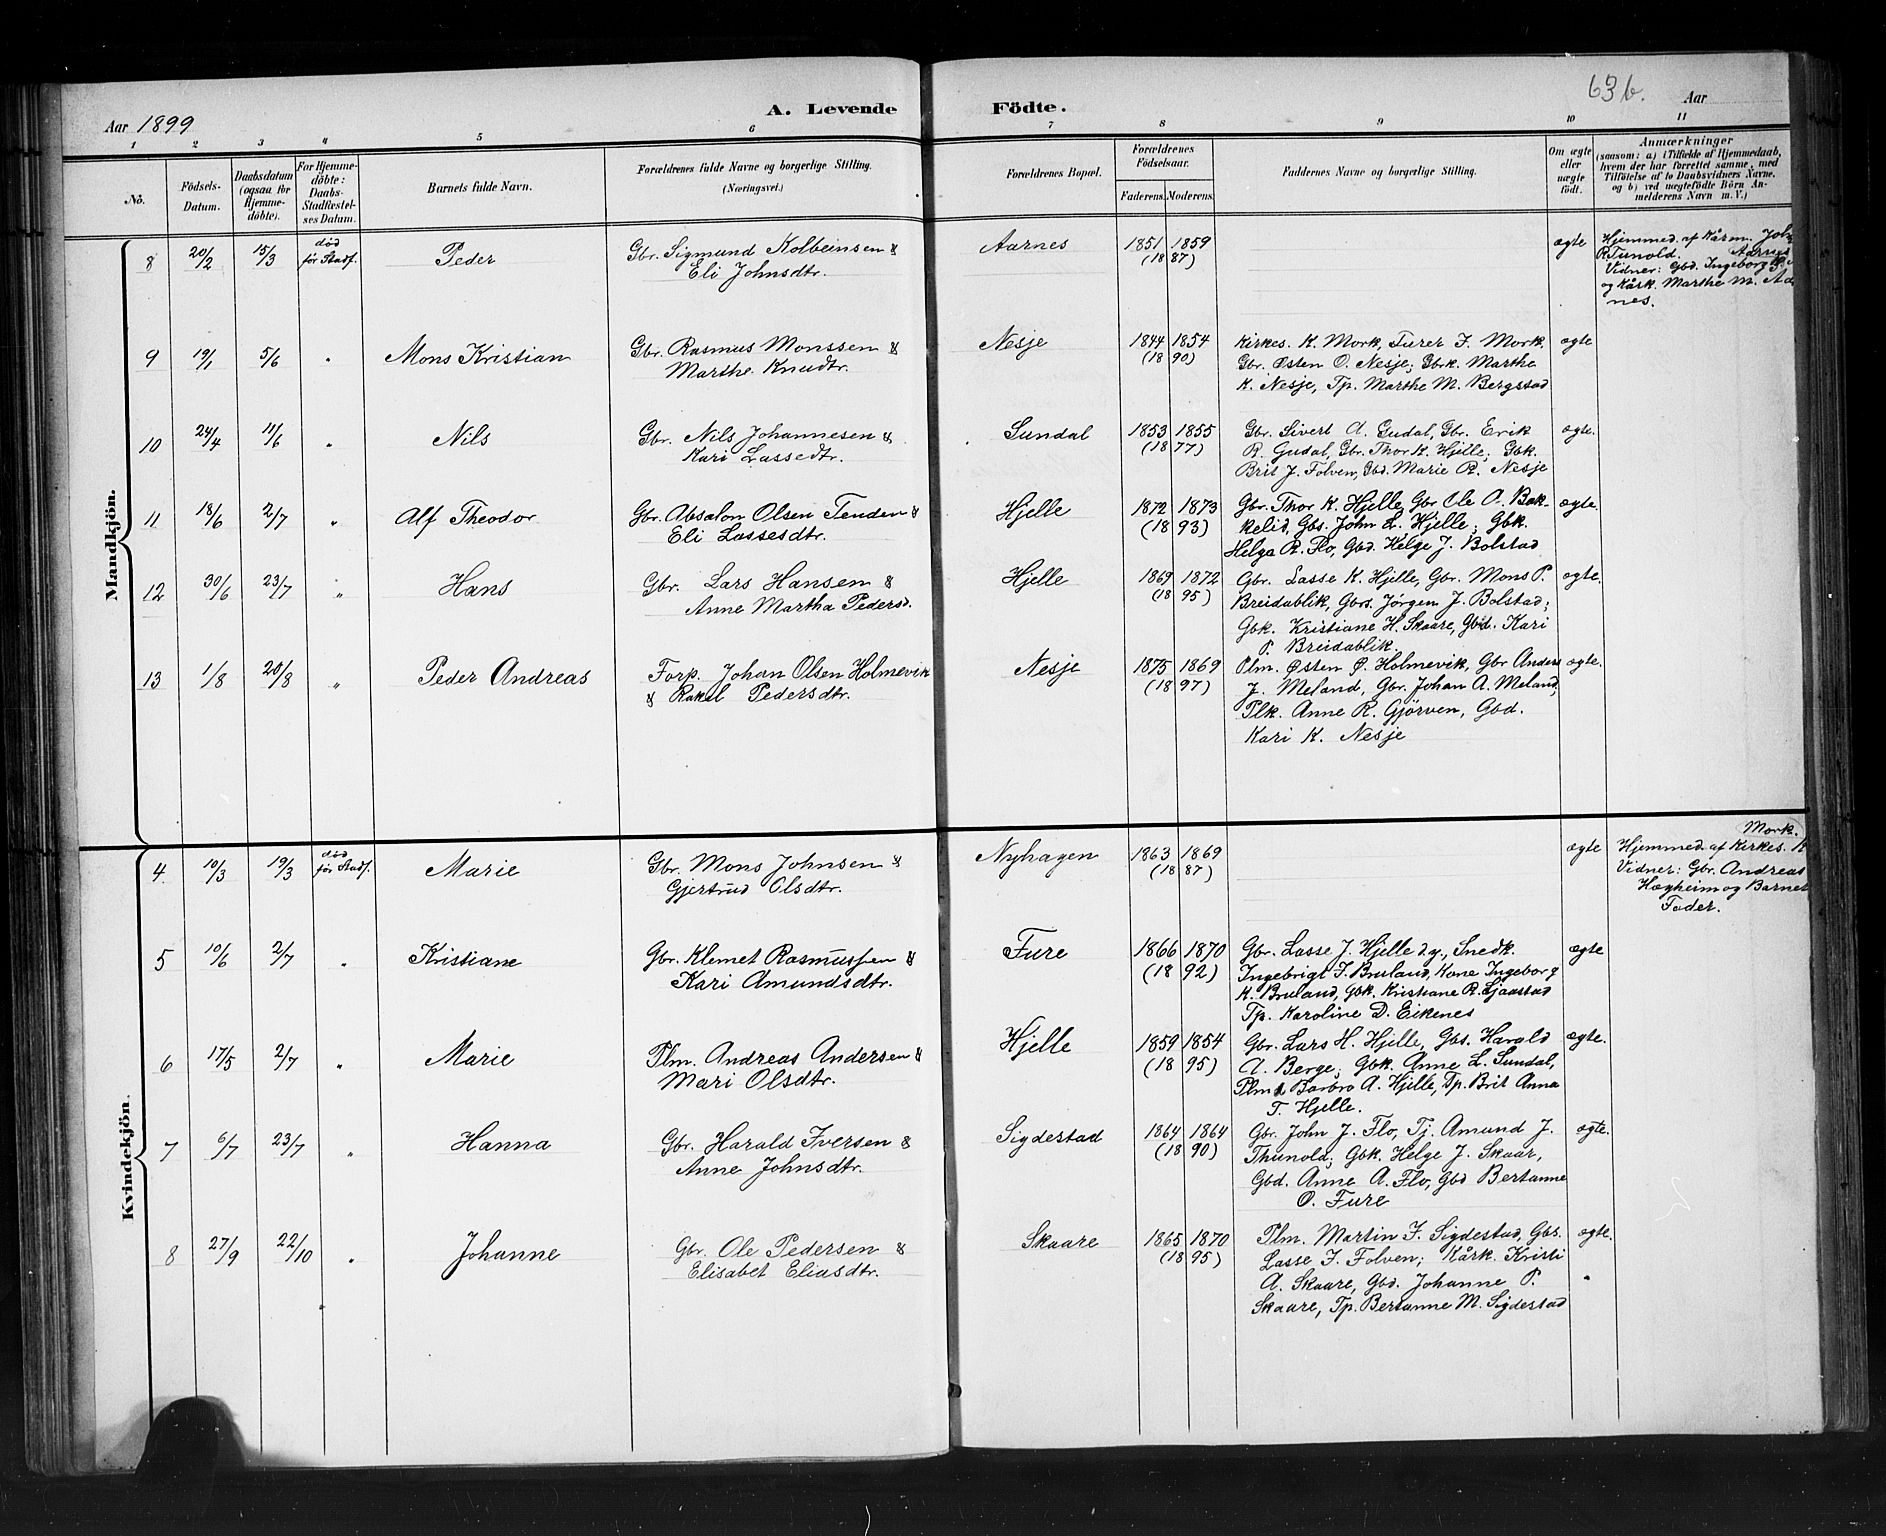 63b.
A. Levende Födte.
Aar 1899
Aar
1 2 3 4 5 6 7 8 9 10 11
No.
Födsels-Datum.
Daabsdatum (ogsaa for Hjemmedöbte).
For Hjemmedöbte: Daabs-Stadfæstelses Datum.
Barnets fulde Navn.
Forældrenes fulde Navne og borgerlige Stilling. (Næringsvei.)
Forældrenes Bopæl.
Forældrenes Födselsaar.
Faderens. Moderens.
Faddernes Navne og borgerlige Stilling.
Om ægte eller uægte födt.
Anmærkninger
(saasom: a) i Tilfælde af Hjemmedaab,
hvem der har forrettet samme, med
Tilföielse af to Daabsvidners Navne,
og b) ved uægtefödte Börn An-
melderens Navn m. V.)
Mandkjön.
8 20/2 15/3 død før Stadf. Peder Gbr. Sigmund Kolbeinsen & Aarnes 1851 1859 ægte Hjemmed. af Kårm. Joh.
Eli Johnsdtr. (1887) R. Tunold. Aarnes
Vidner: Gbd. Ingeborg
og Kårk. Marthe M. Aar
nes.
9 19/1 5/6 " Mons Kristian Gbr. Rasmus Monssen & Nesje 1844 1854 Kirkes. K. Mork, Furer J. Mork. ægte
Marthe Knudtr. (1890) Gbr. Østen O. Nesje; Gbrk. Marthe
K. Nesje, Tp. Marthe M. Bergstad
10 24/4 11/6 " Nils Gbr. Nils Johannesen & Sundal 1853 1855 Gbr. Sivert A. Gudal, Gbr. Erik ægte.
Kari Lassedtr. (1877) R. Gudal, Gbr. Thor K. Hjelle; Gbk.
Brit J. Folven, Gbd. Marie R. Nesje
11 18/6 2/7 " Alf Theodor Gbr. Absalon Olsen Tenden & Hjelle 1872 1873 Gbr. Thor K. Hjelle, Gbr Ole A. Bak- ægte.
Eli Lassesdtr. (1893) kelid, Gbs. John L. Hjelle; Gbk.
Helga R. Flo, Gbd. Helge J. Bolstad
12 30/6 23/7 " Hans Gbr. Lars Hansen & Hjelle 1869 1872 Gbr. Lasse K. Hjelle, Gbr. Mons P. ægte.
Anne Martha Pedersd. (1895) Breidablik, Gbrs. Jørgen J. Bolstad;
Gbk. Kristiane H. Skaare, Gbd. Kari
P. Breidablik.
13 1/8 20/8 " Peder Andreas Forp. Johan Olsen Holmevik Nesje 1875 1869 Plm. Østen Ø. Holmevik, Gbr Anders ægte.
& Rakel Pedersdtr. (1897) J. Meland, Gbr. Johan A. Meland,
Plk. Anne R. Gjörven, Gbd.
Kari K. Nesje
Kvindekjön.
Mork.
4. 10/3 19/3 død før Stadf. Marie Gbr. Mons Johnsen & Nyhagen 1863 1869 ægte Hjemmed. af Kirkes. K
Gjertrud Olsdtr. (1887) Vidner: Gbr. Andreas
Hægheim og Barnets
Fader.
5 10/6 2/7 " Kristiane Gbr. Klemet Rasmussen & Fure 1866 1870 Gbr. Lasse J. Hjelle d.y., Snedk. ægte
Kari Amundsdtr. (1892) Ingebrigt J. Bruland, Kone Ingeborg
K. Bruland, Gbk. Kristiane R. Sjaastad
Tp. Karoline D. Eikenes
6 17/5 2/7 " Marie Plm. Andreas Andersen & Hjelle 1859 1854 Gbr. Lars H. Hjelle, Gbs. Harald ægte.
Mari Olsdtr. (1895) A. Berge; Gbk. Anne L. Sundal,
Plmk Barbro A. Hjelle, Tp. Brit Anna
T. Hjelle.
7 6/7 23/7 " Hanna Gbr. Harald Iversen & Sigdestad 1864 1864 Gbr. John J. Flo, Tj. Amund J. ægte.
Anne Johnsdtr. (1890) Thunold; Gbk. Helge J. Skaar,
Gbd. Anne A. Flo, Gbd Bertanne
O. Fure
8 27/9 22/10 " Johanne Gbr. Ole Pedersen & Skaare 1865 1870 Plm. Martin J. Sigdestad, Gbs. ægte.
Elisabet Eliasdtr. (1895) Lasse J. Folven; Kårk. Kristi
A. Skaare, Gbd. Johanne P.
Skaare, Tp. Bertanne M. Sigdestad